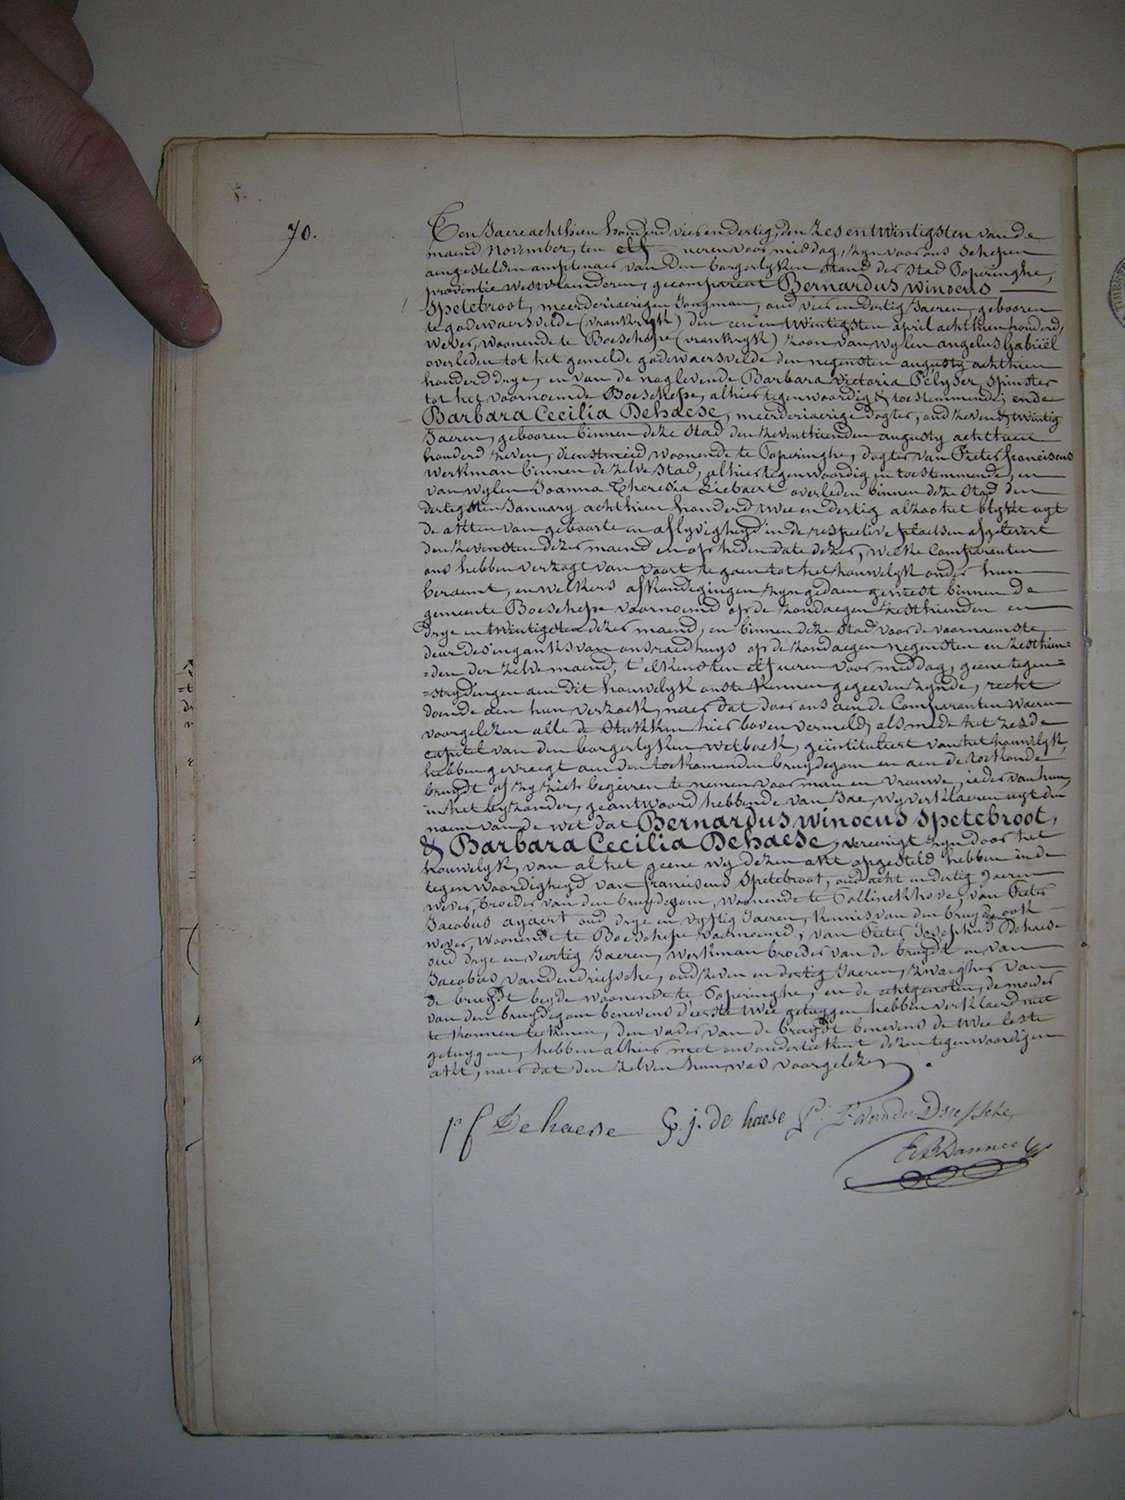 70.
Ten Jaere achthien honderd vier en dertig, den zesentwintigsten van de
maend November, ten elf uren voor middag, zyn voor ons Schepen
aengestelden amptenaer van den borgerlyken Stand der Stad Poperinghe,
provintie westvlaenderen, gecompareert Bernardus winocus
Spetebroot, meerderjaerigen Jongman, oud vier en dertig Jaeren, gebooren
te godewaersvelde (vrankryk) den een en twintigsten april achthien honderd,
wever, woonende te Boeschepe (vrankryk) zoon van wylen angelus Gabriël
overleden tot het gemelde godewaersvelde den negensten augusty achthien
honderd drye, en van de naglevende Barbara victoria Pelyser, Spinster
tot het voornoemde Boeschepe, alhier tegenwoordig & toestemmende; ende
Barbara Cecilia Dehaese, meerderjaerige dogter, oud zeven & twintig
Jaeren, gebooren binnen deze Stad den zeventhienden augusty achthien
honderd zeven, dienstmeid woonende te Poperinghe, dogter van Pieter franciscus
werkman binnen de zelve Stad, alhier tegenwoordig en toestemmende, en
van wylen Joanna Theresia Liebaert overleden binnen deze Stad den
dertigsten January achthien honderd twee en dertig alzoo het blykt uyt
de akten van geboorte en aflyvigheyd in de respective plaetsen afgelevert
den zevensten dezer maend en op heden date dezer, welke Comparanten
ons hebben verzogt van voort te gaen tot het houwelyk onder hun
beraemt, en welkers afkondigingen zyn gedaen geweest binnen de
gemeente Boeschepe voornoemd op de zondaegen zesthienden en
drye en twintigsten dezer maend, en binnen deze Stad voor de voornaemste
deur des ingangks van ons raedhuys op de zondaegen negensten en zesthien=
=den der zelve maend, t'elkensten elf uren voor middag, geene tegen=
=strydingen aen dit houwelyk ons te kennen gegeeven zynde, recht
doende aen hun verzoek, naer dat door ons aen de Comparanten waeren
voorgelezen alle de Stukken hier boven vermeld, als mede het zesde
capittel van den borgerlyken wetboek, geintituleert van het houwelyk,
hebben gevraegt aen den toekomenden bruydegom en aen de toekomende
bruydt of zy zich begeiren te nemen voor man en vrouwe, ieder van hun
in het byzonder, geantwoord hebbende van Jae, wy verklaeren uyt den
naem van de wet dat Bernardus winocus Spetebroot,
& Barbara Cecilia Dehaese, vereenigt zyn door het
houwelyk, van al het geene wy dezen akt opgesteld hebben in de
tegenwoordigheyd van franciscus Spetebroot, oud acht en dertig Jaeren
wever, broeder van den bruydegom, woonende te Pollinckhove, van Pieter
Jacobus agaert oud drye en vyftig Jaeren, kennis van den bruydegom ook
wever, woonende te Boeschepe voornoemd, van Pieter Josephus Dehaese
oud drye en veertig Jaeren, werkman broeder van de bruydt en van
Jacobus vandendriessche, oud zeven en dertig Jaeren, zwaegher van
de bruydt beyde woonende te Poperinghe, en de echtgenoten, de moeder
van den bruydegom benevens d'eerste twee getuygen hebben verklaerd niet
te konnen teekenen, den vader van de bruydt benevens de twee leste
getuygen, hebben alhier met ons onderteekent dezen tegenwoordigen
akt, naer dat den zelven hun was voorgelezen.
pf Dehaese p. j. de haese